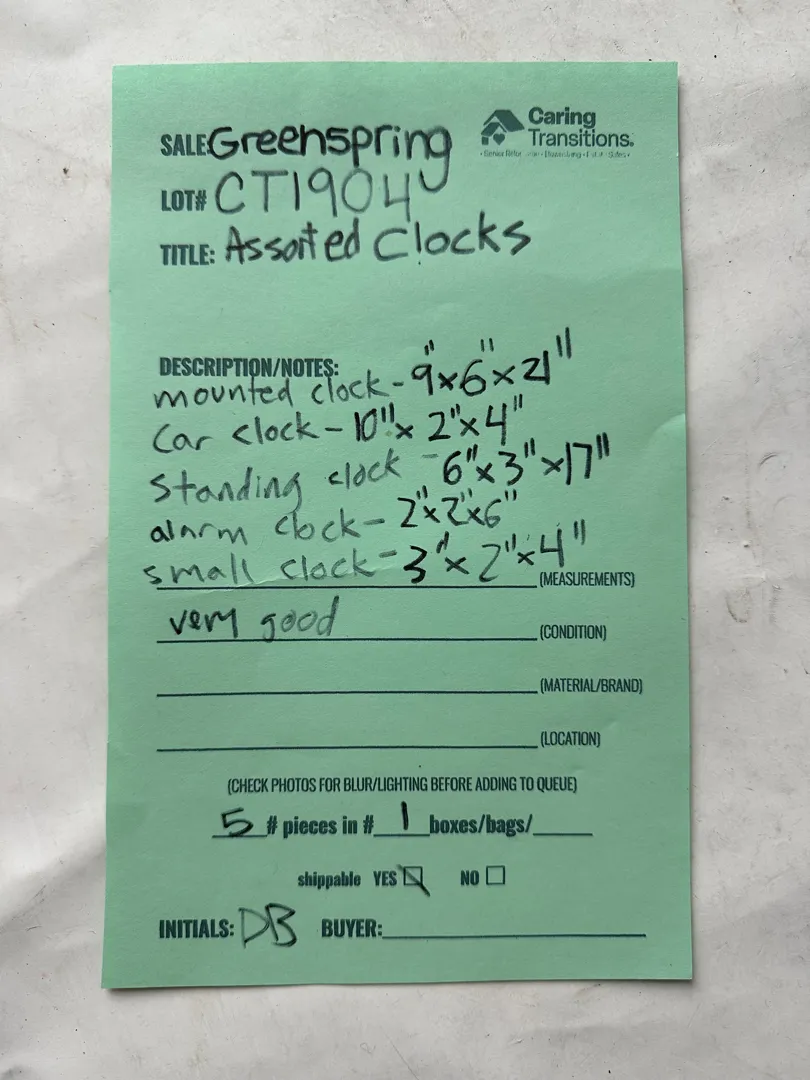 SALE: Greenspring
Caring
Transitions.
LOT# CT1904
TITLE: Assorted Clocks
DESCRIPTION/NOTES:
mounted clock - 9" x 6" x 21"
Car clock - 10" x 2" x 4"
Standing clock - 6" x 3" x 17"
alarm clock - 2" x 2" x 6"
small clock - 3" x 2" x 4"
(MEASUREMENTS)
very good (CONDITION)
(MATERIAL/BRAND)
(LOCATION)
(CHECK PHOTOS FOR BLUR/LIGHTING BEFORE ADDING TO QUEUE)
5 # pieces in # 1 boxes/bags/
shippable YES NO
INITIALS: DB BUYER: